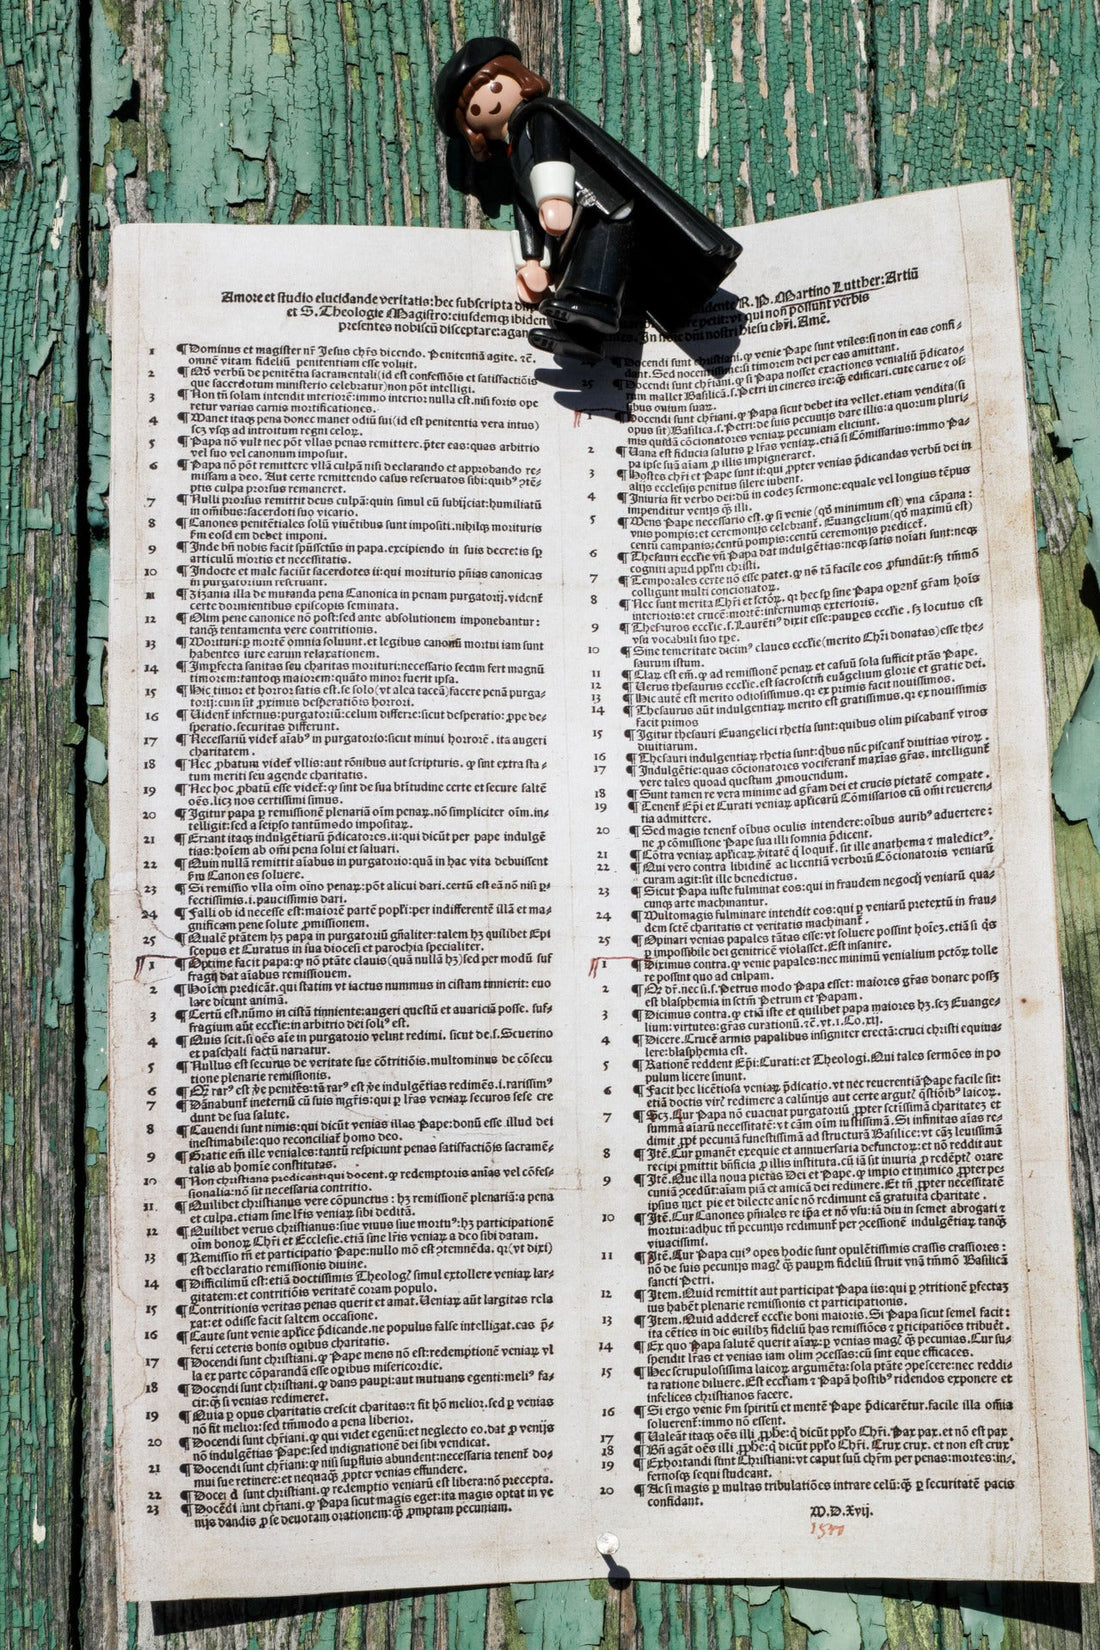 Amore et studio elucidande veritatis: hec subscripta
dente R. P. Martino Lutther: Artiū
et S. Theologie Magistro: eiusdemq; ibidem
petit: vt qui non possunt verbis
presentes nobiscū disceptare: agant
In noīe dnī nostri hiesu chr̄i. Amē.
1 ¶ Dominus et magister nr̄ Jesus chr̄s dicendo. Penitentiā agite. ⁊c̄.
omnē vitam fideliū penitentiam esse voluit.
2 ¶ Qd̄ verbū de penitētia sacramentali (id est confessiōis et satisfactiōis
que sacerdotum ministerio celebratur) non pōt intelligi.
3 ¶ Non tn̄ solam intendit interiorē: immo interior nulla est. nisi foris ope
retur varias carnis mortificationes.
4 ¶ Manet itaq; pena donec manet odiū sui (id est penitentia vera intus)
scz vsq; ad introitum regni celoꝝ.
5 ¶ Papa nō vult nec pōt vllas penas remittere. p̄ter eas: quas arbitrio
vel suo vel canonum imposuit.
6 ¶ Papa nō pōt remittere vllā culpā nisi declarando et approbando re-
missam a deo. Aut certe remittendo casus reseruatos sibi: quibꝰ ꝯtē-
ptis culpa prorsus remaneret.
7 ¶ Nulli prorsus remittit deus culpā: quin simul eū subijciat: humiliatū
in omībus: sacerdoti suo vicario.
8 ¶ Canones penitētiales solū viuētibus sunt impositi. nihilq; morituris
s̄m eosd em debet imponi.
9 ¶ Inde bn̄ nobis facit sp̄ussctūs in papa. excipiendo in suis decretis sp̄
articulū mortis et necessitatis.
10 ¶ Indocte et male faciūt sacerdotes ii: qui morituris pn̄ias canonicas
in purgatorium reseruant.
11 ¶ Zizania illa de mutanda pena Canonica in penam purgatorij. vident̄
certe dormientibus episcopis seminata.
12 ¶ Olim pene canonice nō post: sed ante absolutionem imponebantur:
tanq̄ tentamenta vere contritionis.
13 ¶ Morituri: ꝑ mortē omnia soluunt. et legibus canonū mortui iam sunt
habentes iure earum relaxationem.
14 ¶ Imꝑfecta sanitas seu charitas morituri: necessario secum fert magnū
timorem: tantoq; maiorem: quāto minor fuerit ipsa.
15 ¶ Hic timor et horror satis est. se solo (vt alea taceā) facere penā purga-
torij: cum sit ꝓximus desperatiōis horrori.
16 ¶ Uident̄ infernus: purgatoriū: celum differre: sicut desperatio: ꝓpe de-
speratio. securitas differunt.
17 ¶ Necessariū videt̄ aīabꝰ in purgatorio: sicut minui horrorē. ita augeri
charitatem.
18 ¶ Nec ꝓbatum videt̄ vllis: aut rōnibus aut scripturis. ꝙ sint extra sta-
tum meriti seu agende charitatis.
19 ¶ Nec hoc ꝓbatū esse videt̄: ꝙ sint de sua bt̄itudine certe et secure saltē
oēs. licz nos certissimi simus.
20 ¶ Igitur papa ꝑ remissionē plenariā oīm penaꝝ. nō simpliciter oīm. in-
telligit: sed a seipso tantūmodo impositaꝝ.
21 ¶ Errant itaq; indulgētiarū p̄dicatores. ii: qui dicūt per pape indulgē
tias: hoīem ab omī pena solui et saluari.
22 ¶ Quin nullā remittit aīabus in purgatorio: quā in hac vita debuissent
s̄m Canones soluere.
23 ¶ Si remissio vlla oīm oīno penaꝝ: pōt alicui dari. certū est eā nō nisi ꝑ-
fectissimis. i. paucissimis dari.
24 ¶ Falli ob id necesse est: maiorē partē popl̄i: per indifferentē illā et ma-
gnificam pene solute ꝓmissionem.
25 ¶ Qualē ptātem hꝫ papa in purgatoriū gn̄aliter: talem hꝫ quilibet Epi
scopus et Curatus in sua diocesi et parochia specialiter.
1 ¶ Optime facit papa: ꝙ nō ptāte clauis (quā nullā hꝫ) sed per modū suf
fragij dat aīabus remissionem.
2 ¶ Hoīem predicāt. qui statim vt iactus nummus in cistam tinnierit: euo
lare dicunt animā.
3 ¶ Certū est. nūmo in cistā tinniente: augeri questū et auariciā posse. suf-
fragium aūt eccl̄ie: in arbitrio dei soliꝰ est.
4 ¶ Quis scit. si oēs aīe in purgatorio velint redimi. sicut de. s. Seuerino
et paschali factū narratur.
5 ¶ Nullus est securus de veritate sue cōtritiōis. multominus de cōsecu
tione plenarie remissionis.
6 ¶ Qꝫ rarꝰ est ꝟe penitēs: tā rarꝰ est ꝟe indulgētias redimēs. i. rarissimꝰ
7 ¶ Dānabunt̄ ineternū cū suis mgr̄is: qui ꝑ lr̄as veniaꝝ securos sese cre
dunt de sua salute.
8 ¶ Cauendi sunt nimis: qui dicūt venias illas Pape: donū esse illud dei
inestimabile: quo reconciliat̄ homo deo.
9 ¶ Gratie em̄ ille veniales: tantū respiciunt penas satisfactiōis sacramē-
talis ab homīe constitutas.
10 ¶ Non christiana predicant: qui docent. ꝙ redemptoris anīas vel cōfes-
sionalia: nō sit necessaria contritio.
11 ¶ Quilibet christianus vere cōpunctus: hꝫ remissionē plenariā: a pena
et culpa. etiam sine lr̄is veniaꝝ sibi debitā.
12 ¶ Quilibet verus christianus: siue viuus siue mortuꝰ: hꝫ participationē
oīm bonoꝝ Chr̄i et Ecclesie. etiā sine lr̄is veniaꝝ a deo sibi datam.
13 ¶ Remissio tn̄ et participatio Pape: nullo mō est ꝯtemnēda. qꝛ (vt dixi)
est declaratio remissionis diuine.
14 ¶ Difficilimū est: etiā doctissimis Theologꝭ simul extollere veniaꝝ lar-
gitatem: et contritiōis veritatē coram populo.
15 ¶ Contritionis veritas penas querit et amat. Ueniaꝝ aūt largitas rela
xat: et odisse facit saltem occasione.
16 ¶ Caute sunt venie apl̄ice p̄dicande. ne populus false intelligat. eas p̄-
ferri ceteris bonis oꝑibus charitatis.
17 ¶ Docendi sunt christiani. ꝙ Pape mens nō est: redemptionē veniaꝝ vl
la ex parte cōparandā esse oꝑibus misericordie.
18 ¶ Docendi sunt christiani. ꝙ dans pauꝑi: aut mutuans egenti: meliꝰ fa-
cit: q̄ si venias redimeret.
19 ¶ Quia ꝑ opus charitatis crescit charitas: ⁊ fit hō melior. sed ꝑ venias
nō fit melior: sed tm̄modo a pena liberior.
20 ¶ Docendi sunt chr̄iani. ꝙ qui videt egenū: et neglecto eo. dat ꝓ venijs
nō indulgētias Pape: sed indignationē dei sibi vendicat.
21 ¶ Docendi sunt chr̄iani: ꝙ nisi suꝑfluis abundent: necessaria tenent̄ do-
mui sue retinere: et nequaq̄ ꝓpter venias effundere.
22 ¶ Docendi sunt christiani. ꝙ redemptio veniarū est libera: nō precepta.
23 ¶ Docēdi sunt chr̄iani. ꝙ Papa sicut magis eget: ita magis optat in ve
nijs dandis ꝓ se deuotam orationem: q̄ ꝓmptam pecuniam.
¶ Docendi sunt christiani. ꝙ venie Pape sunt vtiles: si non in eas confi-
dant. Sed nocentissime: si timorem dei per eas amittant.
25 ¶ Docendi sunt chr̄iani. ꝙ si Papa nosset exactiones venialiū p̄dicato-
rum mallet Basilicā. s. Petri in cineres ire: q̄ edificari. cute carne ⁊ os-
sibus ouium suaꝝ.
1 ¶ Docendi sunt chr̄iani. ꝙ Papa sicut debet ita vellet. etiam vendita (si
opus sit) Basilica. s. Petri: de suis pecunijs dare illis: a quorum pluri-
mis quidā cōcionatores veniaꝝ pecuniam eliciunt.
2 ¶ Uana est fiducia salutis ꝑ lr̄as veniaꝝ. etiā si Cōmissarius: immo Pa-
pa ipse suā aīam ꝓ illis impigneraret.
3 ¶ Hostes chr̄i et Pape sunt ii: qui ꝓpter venias p̄dicandas verbū dei in
alijs ecclesijs penitus silere iubent.
4 ¶ Iniuria fit verbo dei: dū in eodez sermone: equale vel longius tēpus
impenditur venijs q̄ illi.
5 ¶ Mens Pape necessario est. ꝙ si venie (qd̄ minimum est) vna cāpana:
vnis pompis: et ceremonijs celebrant̄. Euangelium (qd̄ maximū est)
centū campanis: centū pompis: centū ceremonijs predicet̄.
6 ¶ Thesauri eccl̄ie vn̄ Papa dat indulgētias: neq; satis noīati sunt: neq;
cogniti apud ppl̄m christi.
7 ¶ Temporales certe nō esse patet. ꝙ nō tā facile eos ꝓfundūt: sꝫ tm̄mō
colligunt multi concionatoꝝ.
8 ¶ Nec sunt merita Chr̄i et sctōꝝ. qꝛ hec sꝑ sine Papa oꝑant̄ gr̄am hoīs
interioris: et crucē: mortē: infernumq; exterioris.
9 ¶ Thesauros eccl̄ie. s. Laurētiꝰ dixit esse: pauꝑes eccl̄ie. sꝫ locutus est
vsu vocabuli suo tꝑe.
10 ¶ Sine temeritate dicimꝰ claues eccl̄ie (merito Chr̄i donatas) esse the-
saurum istum.
11 ¶ Claꝝ est em̄. ꝙ ad remissionē penaꝝ et casuū sola sufficit ptās Pape.
12 ¶ Uerus thesaurus eccl̄ie. est sacrosctm̄ euāgelium glorie et gratie dei.
13 ¶ Hic autē est merito odiosissimus. qꝛ ex primis facit nouissimos.
14 ¶ Thesaurus aūt indulgentiaꝝ merito est gratissimus. qꝛ ex nouissimis
facit primos
15 ¶ Igitur thesauri Euangelici rhetia sunt: quibus olim piscabant̄ viros
diuitiarum.
16 ¶ Thesauri indulgentiaꝝ rhetia sunt: qd̄bus nūc piscant̄ diuitias viroꝝ.
17 ¶ Indulgētie: quas cōcionatores vociferant̄ maxīas gr̄as. intelligunt̄
vere tales quoad questum ꝓmouendum.
18 ¶ Sunt tamen re vera minime ad gr̄am dei et crucis pietatē compate.
19 ¶ Tenent̄ Epī et Curati veniaꝝ apl̄icarū Cōmissarios cū omī reueren-
tia admittere.
20 ¶ Sed magis tenent̄ oībus oculis intendere: oībus auribꝰ aduertere:
ne ꝓ cōmissione Pape sua illi somnia p̄dicent.
21 ¶ Cōtra veniaꝝ apl̄icaꝝ ꝟitatē q̄ loquit̄. sit ille anathema ⁊ maledictꝰ.
22 ¶ Qui vero contra libidinē ac licentiā verborū Cōcionatoris veniarū
curam agit: sit ille benedictus.
23 ¶ Sicut Papa iuste fulminat eos: qui in fraudem negocij veniarū qua-
cunq; arte machinantur.
24 ¶ Multomagis fulminare intendit eos: qui ꝑ veniarū pretextū in frau-
dem sctē charitatis et veritatis machinant̄.
25 ¶ Opinari venias papales tātas esse: vt soluere possint hoīeꝫ. etiā si q̄s
ꝑ impossibile dei genitricē violasset. Est insanire.
1 ¶ Diximus contra. ꝙ venie papales: nec minimū venialium pctōꝝ tolle
re possint quo ad culpam.
2 ¶ Qd̄ dr̄. nec si. s. Petrus modo Papa esset: maiores gr̄as donare possꝫ
est blasphemia in sctm̄ Petrum et Papam.
3 ¶ Dicimus contra. ꝙ etiā iste et quilibet papa maiores hꝫ. scz Euange-
lium: virtutes: gr̄as curationū. ⁊c̄. vt. i. Co. xij.
4 ¶ Dicere. Crucē armis papalibus insigniter erectā: cruci christi equiua-
lere: blasphemia est.
5 ¶ Rationē reddent Epī: Curati: et Theologi. Qui tales sermōes in po
pulum licere sinunt.
6 ¶ Facit hec licētiosa veniaꝝ p̄dicatio. vt nec reuerentiā Pape facile sit:
etiā doctis virꝭ redimere a calūnijs aut certe argutꝭ q̄stiōibꝰ laicoꝝ.
7 ¶ Scꝫ. Cur Papa nō euacuat purgatoriū ꝓpter sctīssimā charitatez et
summā aīarū necessitatē: vt cām oīm iustissimā. Si infinitas aīas re-
dimit ꝓpt̄ pecuniā funestissimā ad structurā Basilice: vt cāꝫ leuissimā
8 ¶ Itē. Cur ꝑmanēt exequie et anniuersaria defunctoꝝ: et nō reddit aut
recipi ꝑmittit bn̄ficia ꝓ illis instituta. cū iā sit iniuria ꝓ redēptꝭ orare
9 ¶ Itē. Que illa noua pietas Dei et Pape. ꝙ impio et inimico ꝓpter pe-
cuniā ꝯcedūt: aīam piā et amicā dei redimere. Et tn̄ ꝓpter necessitatē
ipsius met pie et dilecte aīe nō redimunt eā gratuita charitate.
10 ¶ Itē. Cur Canones pn̄iales re ip̄a et nō vsu: iā diu in semet abrogati ⁊
mortui: adhuc tn̄ pecunijs redimunt̄ ꝑ ꝯcessionē indulgētiaꝝ tanq̄
viuacissimi.
11 ¶ Itē. Cur Papa cuiꝰ opes hodie sunt opulētissimis crassis crassiores:
nō de suis pecunijs magꝭ q̄ pauꝑm fideliū struit vnā tm̄mō Basilicā
sancti Petri.
12 ¶ Item. Quid remittit aut participat Papa iis: qui ꝑ ꝯtritionē ꝑfectaꝫ
ius habēt plenarie remissionis et participationis.
13 ¶ Item. Quid adderet̄ eccl̄ie boni maioris. Si Papa sicut semel facit:
ita cēties in die cuilibꝫ fideliū has remissiōes ⁊ ꝑticipatiōes tribuēt̄.
14 ¶ Ex quo Papa salutē querit aīaꝝ: ꝑ venias magꝭ q̄ pecunias. Cur su-
spendit lr̄as et venias iam olim ꝯcessas: cū sint eque efficaces.
15 ¶ Hec scrupulosissima laicoꝝ argumēta: sola ptāte ꝯpescere: nec reddi-
ta ratione diluere. Est eccl̄iam ⁊ Papā hostibꝰ ridendos exponere et
infelices christianos facere.
16 ¶ Si ergo venie s̄m spiritū et mentē Pape p̄dicarētur. facile illa omīa
soluerent̄: immo nō essent.
17 ¶ Ualeāt itaq; oēs illi ꝓphē: q̄ dicūt ppl̄o Chr̄i. Pax pax. et nō est pax.
18 ¶ Bn̄ agāt oēs illi ꝓphē: q̄ dicūt ppl̄o Chr̄i. Crux crux. et non est crux
19 ¶ Exhortandi sunt Christiani: vt caput suū chr̄m per penas: mortes: in-
fernosq; sequi studeant.
20 ¶ Ac si magis ꝑ multas tribulatiōes intrare celū: q̄ ꝑ securitatē pacis
confidant.
M.D.Xvij.
1517